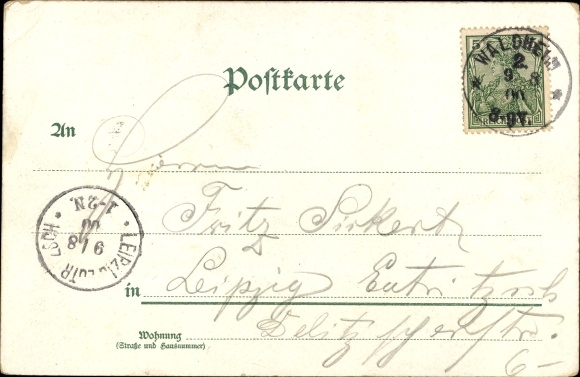 Postkarte
5
REICHSPOST
WALDHEIM
2.
9 8
00
8-9V.
An
Herrn
Fritz Sickert
LEIPZIG-EUTRITZSCH
9/8
00
1-2N.
in Leipzig Eutritzsch
Delitzscherstr.
6-
Wohnung
(Straße und Hausnummer)